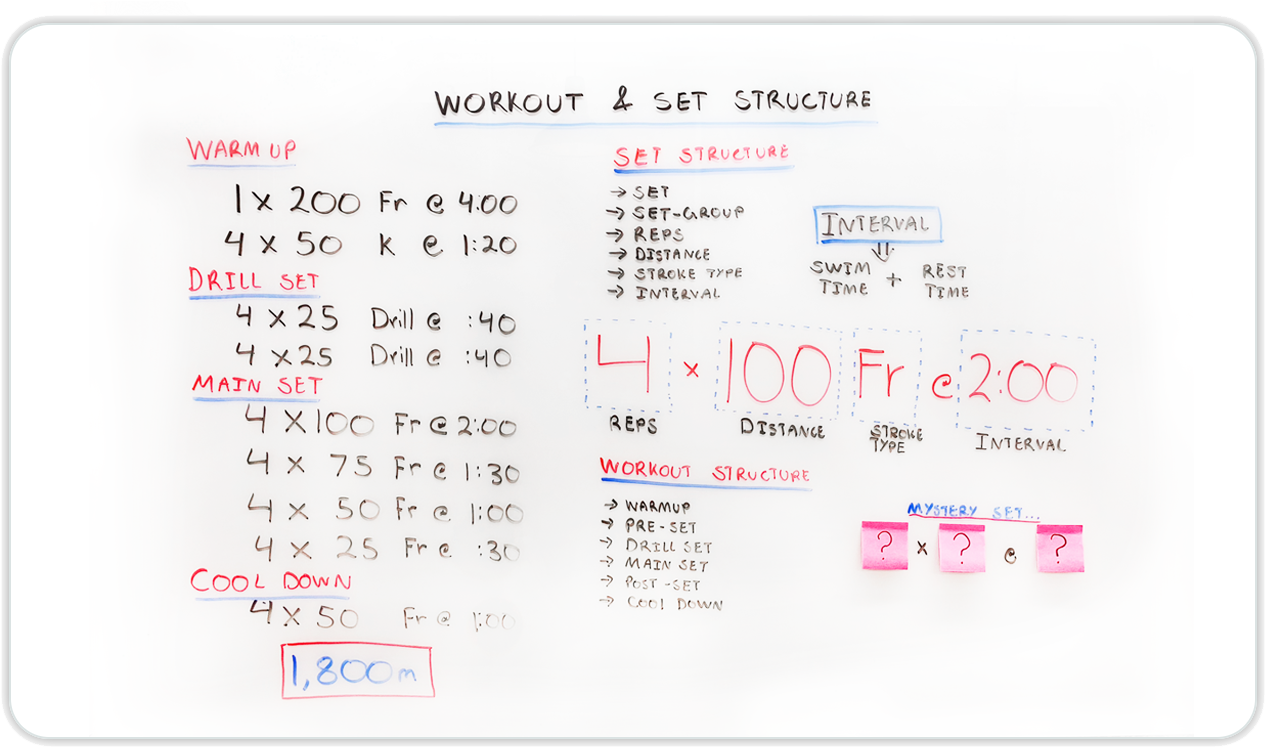 WORKOUT & SET STRUCTURE
WARM UP
1 x 200 Fr @ 4:00
4 x 50 K @ 1:20
DRILL SET
4 x 25 Drill @ :40
4 x 25 Drill @ :40
MAIN SET
4 x 100 Fr @ 2:00
4 x 75 Fr @ 1:30
4 x 50 Fr @ 1:00
4 x 25 Fr @ :30
COOL DOWN
4 x 50 Fr @ 1:00
1,800m
SET STRUCTURE
→ SET
→ SET-GROUP
→ REPS
→ DISTANCE
→ STROKE TYPE
→ INTERVAL
INTERVAL
⇓
SWIM TIME + REST TIME
4 x 100 Fr @ 2:00
REPS DISTANCE STROKE TYPE INTERVAL
WORKOUT STRUCTURE
→ WARMUP
→ PRE-SET
→ DRILL SET
→ MAIN SET
→ POST-SET
→ COOL DOWN
MYSTERY SET...
? x ? @ ?